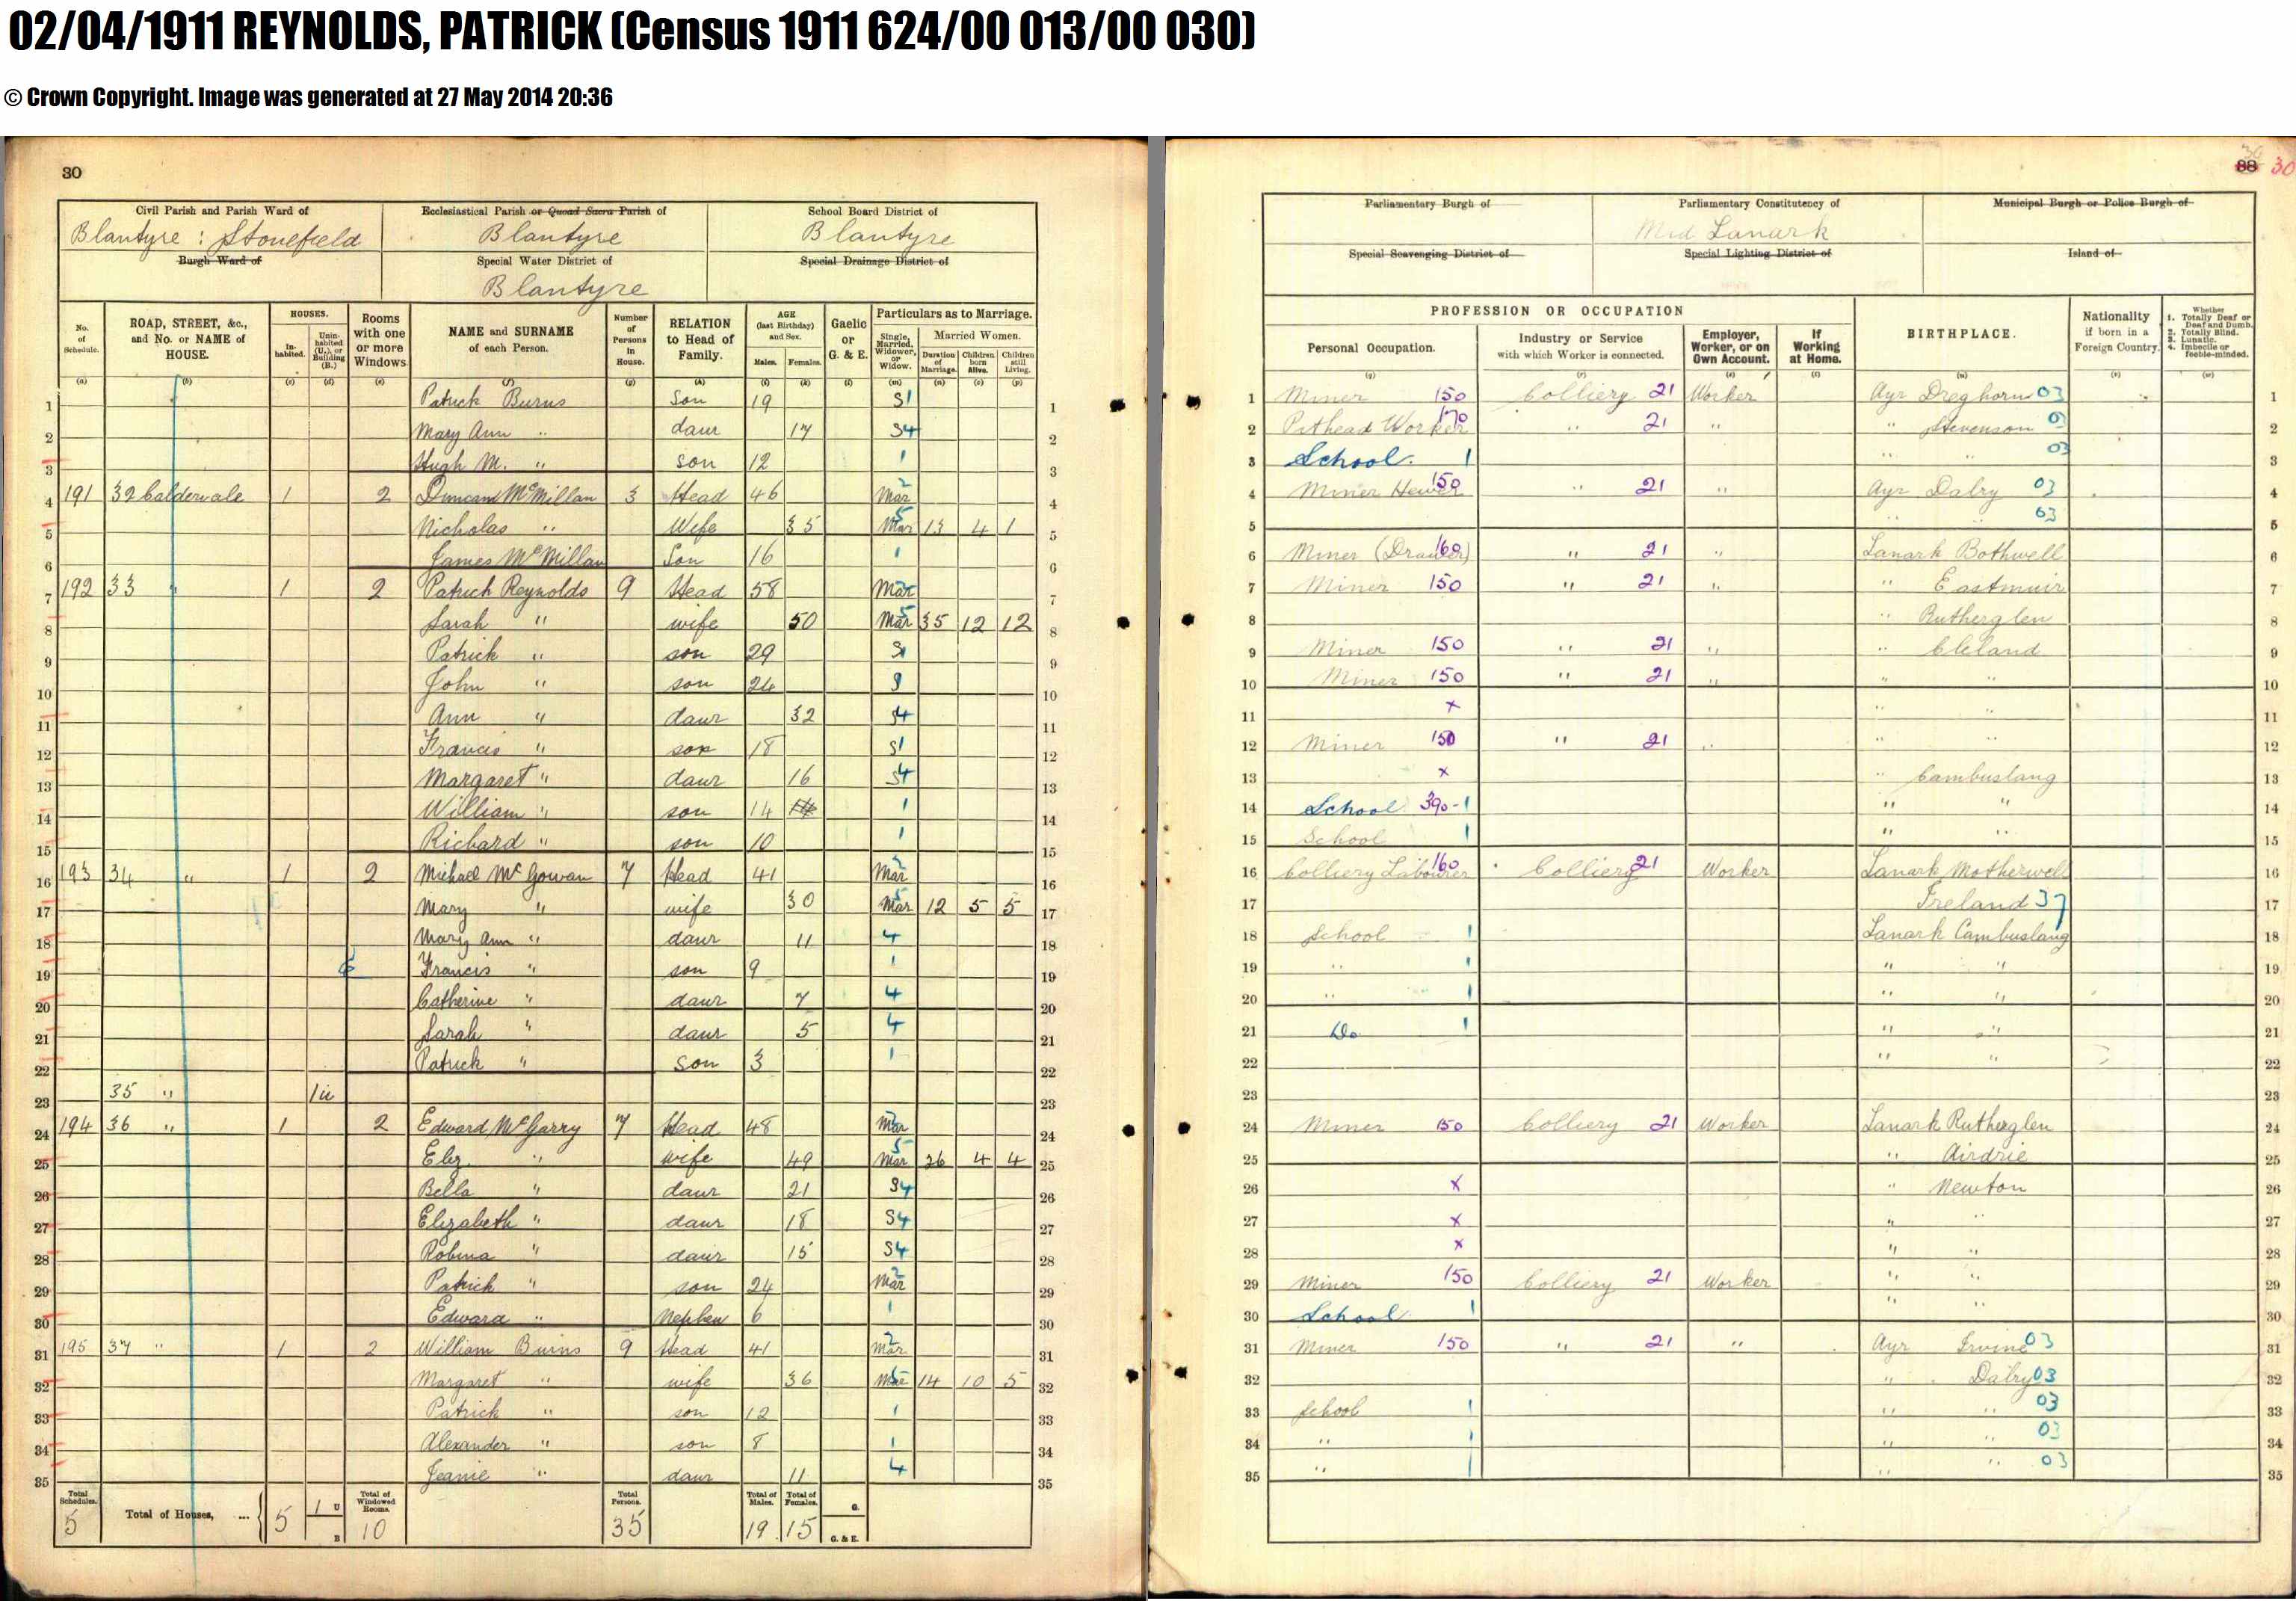 02/04/1911 REYNOLDS, PATRICK (Census 1911 624/00 013/00 030)
© Crown Copyright. Image was generated at 27 May 2014 20:36
30
Civil Parish and Parish Ward of Ecclesiastical Parish or Quoad Sacra Parish of School Board District of
Blantyre : Stonefield Blantyre Blantyre
Burgh Ward of Special Water District of Special Drainage District of
Blantyre
No. of Schedule. ROAD, STREET, &c., and No. or NAME of HOUSE. HOUSES. Inhabited. Uninhabited (U.), or Building (B.) Rooms with one or more Windows NAME and SURNAME of each Person. Number of Persons in House. RELATION to Head of Family. AGE (last Birthday) and Sex. Males. Females. Gaelic or G. & E. Particulars as to Marriage. Single, Married, Widower, or Widow. Married Women. Duration of Marriage. Children born Alive. Children still Living.
(a) (b) (c) (d) (e) (f) (g) (h) (i) (k) (l) (m) (n) (o) (p)
1 Patrick Burns Son 19 S1 1
2 Mary Ann " daur 17 S4 2
3 Hugh M. " son 12 1 3
4 191 32 Caldervale 1 2 Duncan McMillan 3 Head 46 Mar 2 4
5 Nicholas " Wife 35 Mar 5 13 4 1 5
6 James McMillan Son 16 1 6
7 192 33 " 1 2 Patrick Reynolds 9 Head 58 Mar 7
8 Sarah " wife 50 Mar 5 35 12 12 8
9 Patrick " son 29 S1 9
10 John " son 24 S1 10
11 Ann " daur 32 S4 11
12 Francis " son 18 S1 12
13 Margaret " daur 16 S4 13
14 William " son 14 1 14
15 Richard " son 10 1 15
16 193 34 " 1 2 Michael McGowan 7 Head 41 Mar 2 16
17 Mary " wife 30 Mar 5 12 5 5 17
18 Mary Ann " daur 11 4 18
19 Francis " son 9 1 19
20 Catherine " daur 7 4 20
21 Sarah " daur 5 4 21
22 Patrick " son 3 1 22
23 35 " 1u 23
24 194 36 " 1 2 Edward McGarry 7 Head 48 Mar 2 24
25 Eliz. " wife 49 Mar 5 26 4 4 25
26 Bella " daur 21 S4 26
27 Elizabeth " daur 18 S4 27
28 Robina " daur 15 S4 28
29 Patrick " son 24 Mar 2 29
30 Edward " Nephew 6 1 30
31 195 37 " 1 2 William Burns 9 Head 41 Mar 2 31
32 Margaret " wife 36 Mar 5 14 10 5 32
33 Patrick " son 12 1 33
34 Alexander " son 8 1 34
35 Jeanie " daur 11 4 35
Total Schedules. Total of Houses, ... U B Total of Windowed Rooms. Total Persons. Total of Males. Total of Females. G. G. & E.
5 5 1 10 35 19 15
88 30
Parliamentary Burgh of Parliamentary Constituency of Municipal Burgh or Police Burgh of
Mid Lanark
Special Scavenging District of Special Lighting District of Island of
PROFESSION OR OCCUPATION
Personal Occupation. Industry or Service with which Worker is connected. Employer, Worker, or on Own Account. If Working at Home. BIRTHPLACE. Nationality if born in a Foreign Country. Whether 1. Totally Deaf or Deaf and Dumb. 2. Totally Blind. 3. Lunatic. 4. Imbecile or feeble-minded.
(q) (r) (s) (t) (u) (v) (w)
1 Miner 150 Colliery 21 Worker Ayr Dreghorn 03 1
2 Pithead Worker 170 " 21 " " Stevenson 03 2
3 School. 1 " " 03 3
4 Miner Hewer 150 " 21 " Ayr Dalry 03 4
5 " " 03 5
6 Miner (Drawer) 160 " 21 " Lanark Bothwell 6
7 Miner 150 " 21 " " Eastmuir 7
8 " Rutherglen 8
9 Miner 150 " 21 " " Cleland 9
10 Miner 150 " 21 " " " 10
11 x " " 11
12 Miner 150 " 21 " " " 12
13 x " Cambuslang 13
14 School 390 - 1 " " 14
15 School 1 " " 15
16 Colliery Labourer 160 Colliery 21 Worker Lanark Motherwell 16
17 Ireland 37 17
18 School 1 Lanark Cambuslang 18
19 " 1 " " 19
20 " 1 " " 20
21 Do. 1 " " 21
22 " " 22
23 23
24 Miner 150 Colliery 21 Worker Lanark Rutherglen 24
25 " Airdrie 25
26 x " Newton 26
27 x " " 27
28 x " " 28
29 Miner 150 Colliery 21 Worker " " 29
30 School 1 " " 30
31 Miner 150 " 21 " Ayr Irvine 03 31
32 " Dalry 03 32
33 School 1 " " 03 33
34 " 1 " " 03 34
35 " 1 " " 03 35